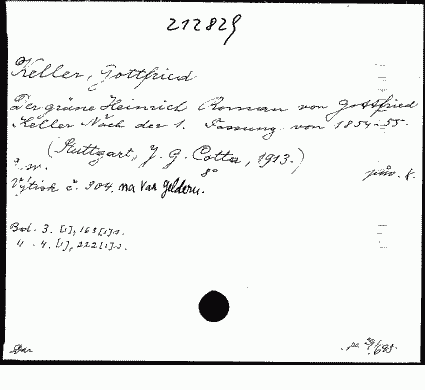 212829
Keller, Gottfried
Der grüne Heinrich Roman von Gottfried
Keller Nach der 1. Fassung von 1854-55.
(Stuttgart, J. G. Cotta, 1913.)
8°
Výtisk č. 304. na Van Geldern.
Bd. 3. [1], 163 [1] s.
" . 4. [1], 222 [1] s.
Dar